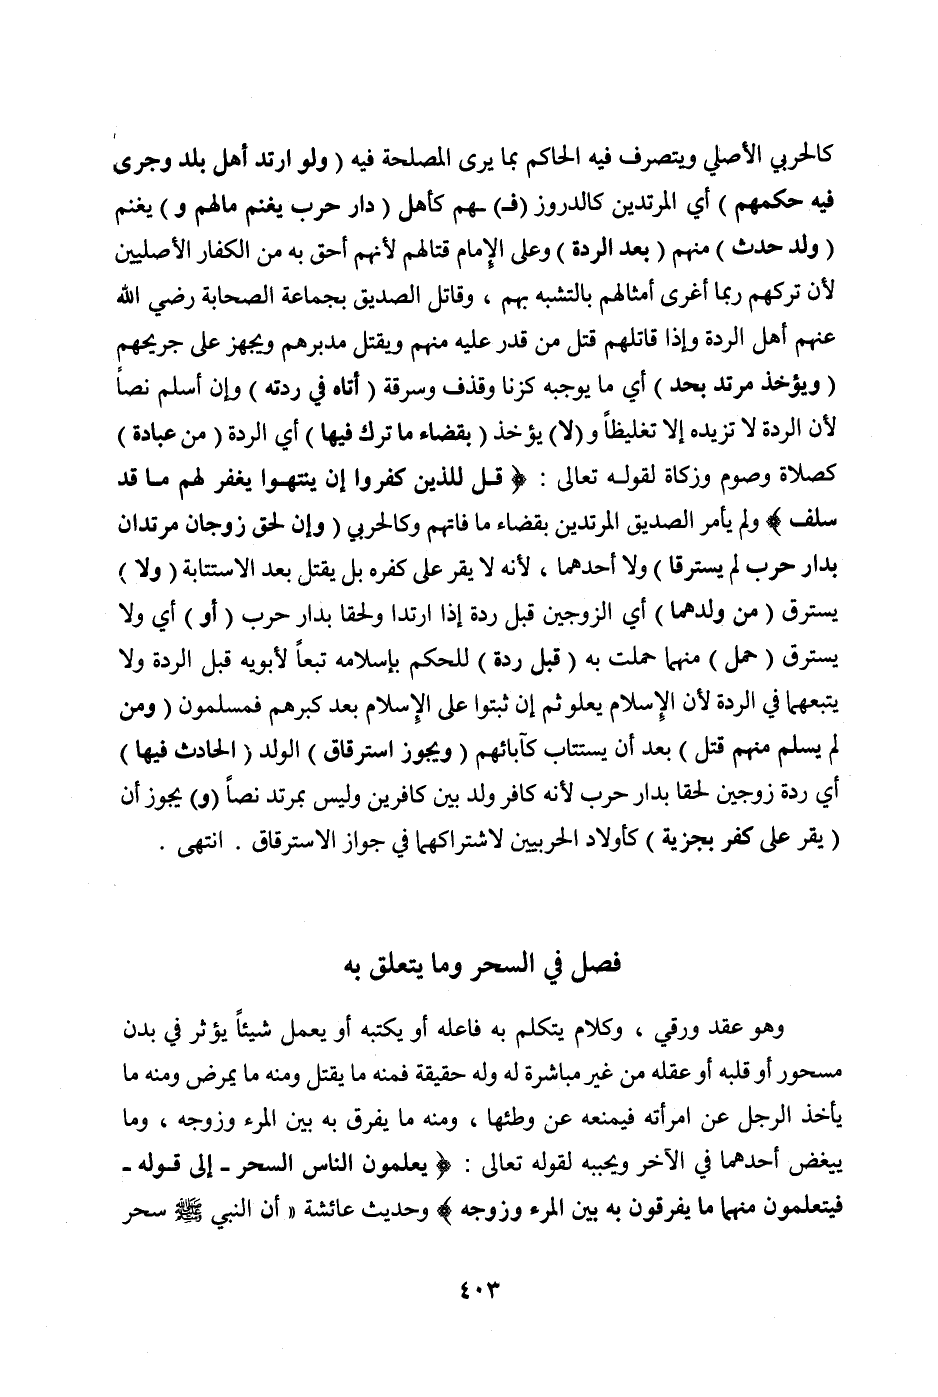 كالحربي الأصلي ويتصرف فيه الحاكم بما يرى المصلحة فيه ( ولو ارتد أهل بلد وجرى
فيه حكمهم ) أي المرتدين كالدروز (فـ) ـهم كأهل ( دار حرب يغنم مالهم و ) يغنم
( ولد حدث ) منهم ( بعد الردة ) وعلى الإمام قتالهم لأنهم أحق به من الكفار الأصليين
لأن تركهم ربما أغرى أمثالهم بالتشبه بهم ، وقاتل الصديق بجماعة الصحابة رضي الله
عنهم أهل الردة وإذا قاتلهم قتل من قدر عليه منهم ويقتل مدبرهم ويجهز على جريحهم
( ويؤخذ مرتد بحد ) أي ما يوجبه كزنا وقذف وسرقة ( أتاه في ردته ) وإن أسلم نصاً
لأن الردة لا تزيده إلا تغليظاً و (لا) يؤخذ ( بقضاء ما ترك فيها ) أي الردة ( من عبادة )
كصلاة وصوم وزكاة لقوله تعالى : ﴿ قل للذين كفروا إن ينتهوا يغفر لهم ما قد
سلف ﴾ ولم يأمر الصديق المرتدين بقضاء ما فاتهم وكالحربي ( وإن لحق زوجان مرتدان
بدار حرب لم يسترقا ) ولا أحدهما ، لأنه لا يقر على كفره بل يقتل بعد الاستتابة ( ولا )
يسترق ( من ولدهما ) أي الزوجين قبل ردة إذا ارتدا ولحقا بدار حرب ( أو ) أي ولا
يسترق ( حمل ) منهما حملت به ( قبل ردة ) للحكم بإسلامه تبعاً لأبويه قبل الردة ولا
يتبعهما في الردة لأن الإسلام يعلو ثم إن ثبتوا على الإسلام بعد كبرهم فمسلمون ( ومن
لم يسلم منهم قتل ) بعد أن يستتاب كآبائهم ( ويجوز استرقاق ) الولد ( الحادث فيها )
أي ردة زوجين لحقا بدار حرب لأنه كافر ولد بين كافرين وليس بمرتد نصاً (و) يجوز أن
( يقر على كفر بجزية ) كأولاد الحربيين لاشتراكهما في جواز الاسترقاق . انتهى .
فصل في السحر وما يتعلق به
وهو عقد ورقي ، وكلام يتكلم به فاعله أو يكتبه أو يعمل شيئاً يؤثر في بدن
مسحور أو قلبه أو عقله من غير مباشرة له وله حقيقة فمنه ما يقتل ومنه ما يمرض ومنه ما
يأخذ الرجل عن امرأته فيمنعه عن وطئها ، ومنه ما يفرق به بين المرء وزوجه ، وما
يبغض أحدهما في الآخر ويحببه لقوله تعالى : ﴿ يعلمون الناس السحر ـ إلى قوله ـ
فيتعلمون منهما ما يفرقون به بين المرء وزوجه ﴾ وحديث عائشة « أن النبي ﷺ سحر
٤٠٣